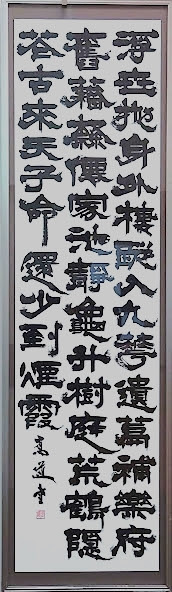 浮世抛身外棲蹤入九華遺篇補樂府
舊籍隸僊家池靜龜升樹庭荒鶴隱
花古來天子命還少到煙霞